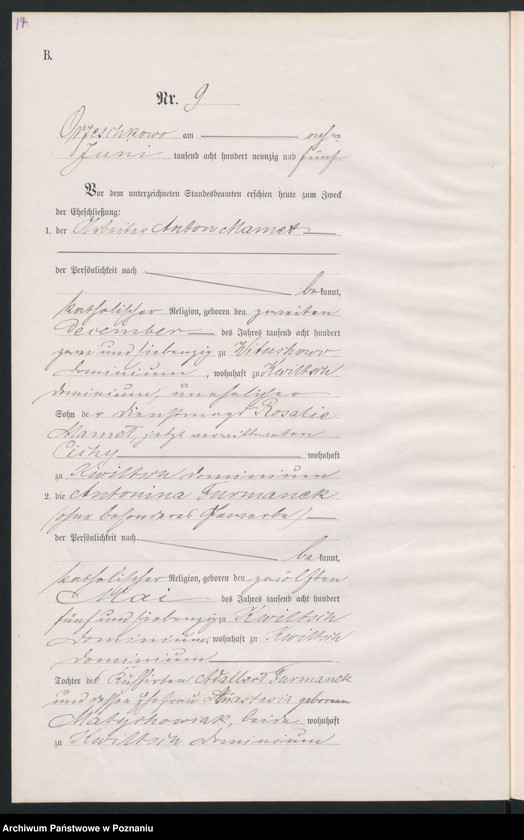 17.
B.
Nr. 9
Orzeschkowo am achten
Juni tausend acht hundert neunzig und fünf
Vor dem unterzeichneten Standesbeamten erschien heute zum Zweck
der Eheschließung:
1. der Arbeiter Anton Mamet
der Persönlichkeit nach
bekannt,
katholischer Religion, geboren den zweiten
December des Jahres tausend acht hundert
zwei und siebenzig zu Wituchowo
Dominium, wohnhaft zu Kwiltsch
Dominium, unehelicher
Sohn der Dienstmagd Rosalie
Mamet, jetzt
Cichy wohnhaft
zu Kwiltsch Dominium
2. die Antonina Furmanek
(ohne besonderes Gewerbe)
der Persönlichkeit nach
bekannt,
katholischer Religion, geboren den zwölften
Mai des Jahres tausend acht hundert
fünf und siebenzig zu Kwiltsch
Dominium, wohnhaft zu Kwiltsch
Dominium
Tochter des Kuhhirten Adalbert Furmanek
und dessen Ehefrau Anastasia geborenen
Matychowiak, beide wohnhaft
zu Kwiltsch Dominium
Archiwum Państwowe w Poznaniu